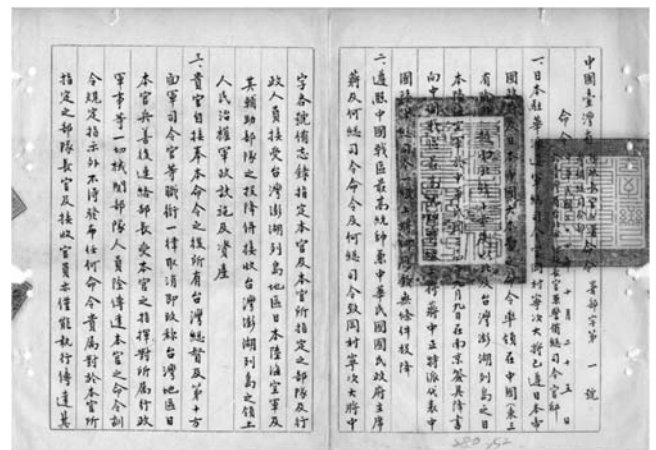 中國臺灣省 政長官公署 命令 署部字第 一 號
命令 十月二十五日
一、日本駐華 軍總司令官岡村寧次大將已遵日本帝
國政 及日本帝國大本營 命令率領在中國（東三
省除 越南北緯十六度以北及台灣澎湖列島之日
本陸 空軍於中華 九月九日在南京簽具降書
向中國戰區最高 將蔣中正特派代表中
國陸 總司令一級上將何應欽無條件投降
二、遵照中國戰區最高統帥兼中華民國國民政府主席
蔣及何總司令命令及何總司令致岡村寧次大將中
字各號備忘錄指定本官及本官所指定之部隊及行
政人員接受台灣澎湖列島地區日本陸海空軍及
其輔助部隊之投降併接收台灣澎湖列島之領土
人民治權軍政設施及資產
三、貴官自接奉本命令之後所有台灣總督及第十方
面軍司令官等職銜一律取消即改稱台灣地區日
本官兵善後連絡部長受本官之指揮對所屬行政
軍事等一切機關部隊人員除傳達本官之命令訓
令規定指示外不得發布任何命令貴屬對於本官所
指定之部隊長官及接收官員亦僅能執行傳達其